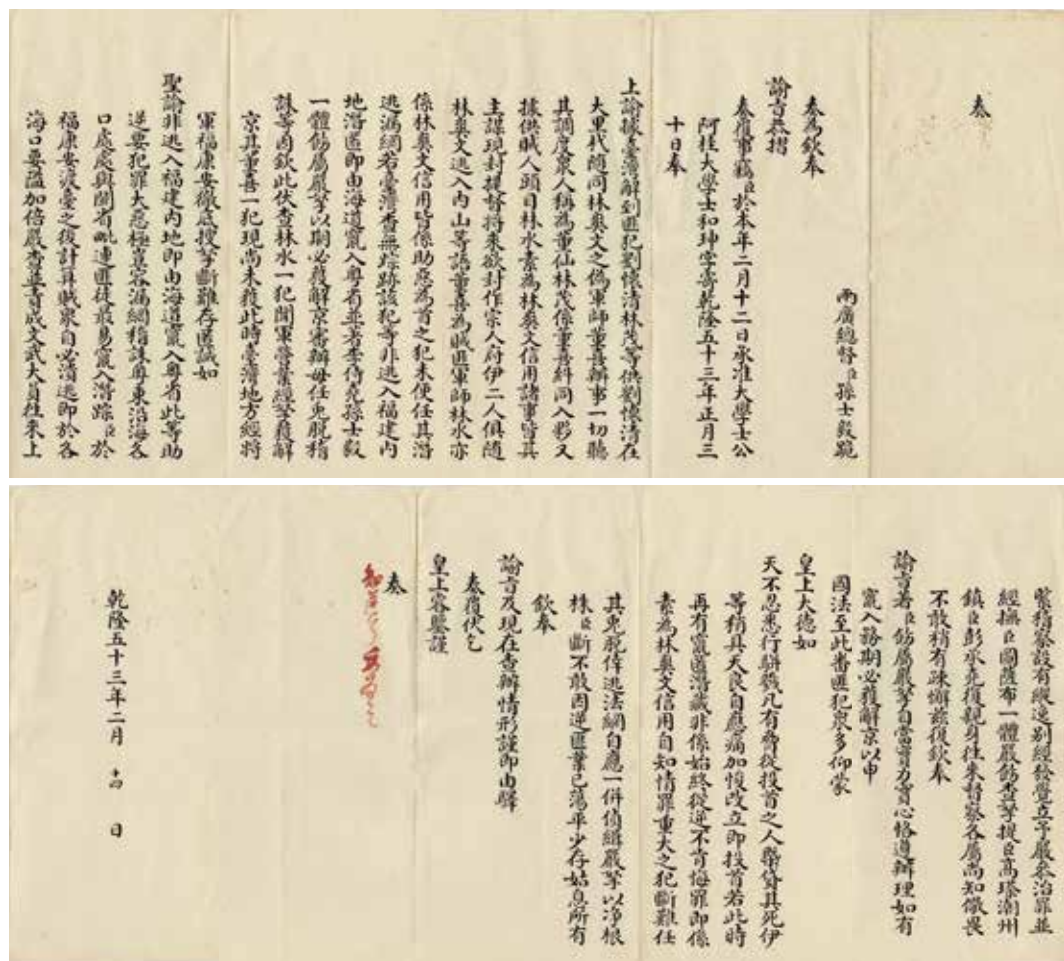 奏
兩廣總督臣孫士毅跪
奏為欽奉
諭旨恭摺
奏覆事竊臣於本年二月十二日承准大學士公
阿桂大學士和珅字寄乾隆五十三年正月三
十日奉
上諭據善薄解到匪犯劉懷清林茂等供劉懷清在
大里杙隨同林爽文之偽軍師董喜辦事一切聽
其調度衆人稱為董仙林茂係董喜糾同入夥又
據供賊人頭目林水素為林爽文信用諸事皆其
主謀現封提督將來欲封作宗人府伊二人俱隨
林爽文逃入內山等語董喜為賊匪軍師林水亦
係林爽文信用皆係助惡為首之犯未便任其潛
逃漏網若臺灣查無踪跡該犯等非逃入福建內
地潛匿即由海道竄入粵省並著李侍堯孫士毅
一體飭屬嚴拏以期必獲解京審辦毋任兔脫稽
誅等因欽此伏查林水一犯聞軍營業經拏獲解
京其董喜一犯現尚未獲此時臺灣地方經將
軍福康安徹底搜拏斷難存匿誠如
聖諭非逃入福建內地即由海道竄入粵省此等助
逆要犯罪大惡極豈容漏網稽誅粵東沿海各
口處處與閩省毗連匪徒最易竄入潛踪臣於
福康安渡臺之後計算賊衆自必潰逃即於各
海口要隘加倍嚴查並責成文武大員往來上
緊稽察設有縱逸別經發覺立予嚴參治罪並
經撫臣圖薩布一體嚴飭查拏提臣高瑹潮州
鎮臣彭承堯復親身往來督察各屬尚知儆畏
不敢稍有疎懈茲復欽奉
諭旨著臣飭屬嚴拏自當實力實心恪遵辦理如有
竄入務期必獲解京以申
國法至此番匪犯衆多仰蒙
皇上大德如
天不忍悉行駢戮凡有脅從投首之人槩貸其死伊
等稍具天良自應痛加悛改立即投首若此時
再有竄匿潛藏非係始終從逆不肯悔罪即係
素為林爽文信用自知情罪重大之犯斷難任
其兔脫倖逃法網自應一併偵緝嚴拏以淨根
株臣斷不敢因逆匪業已蕩平少存姑息所有
欽奉
諭旨及現在查辦情形謹即由驛
奏覆伏乞
皇上睿鑒謹
奏
乾隆五十三年二月 十四 日